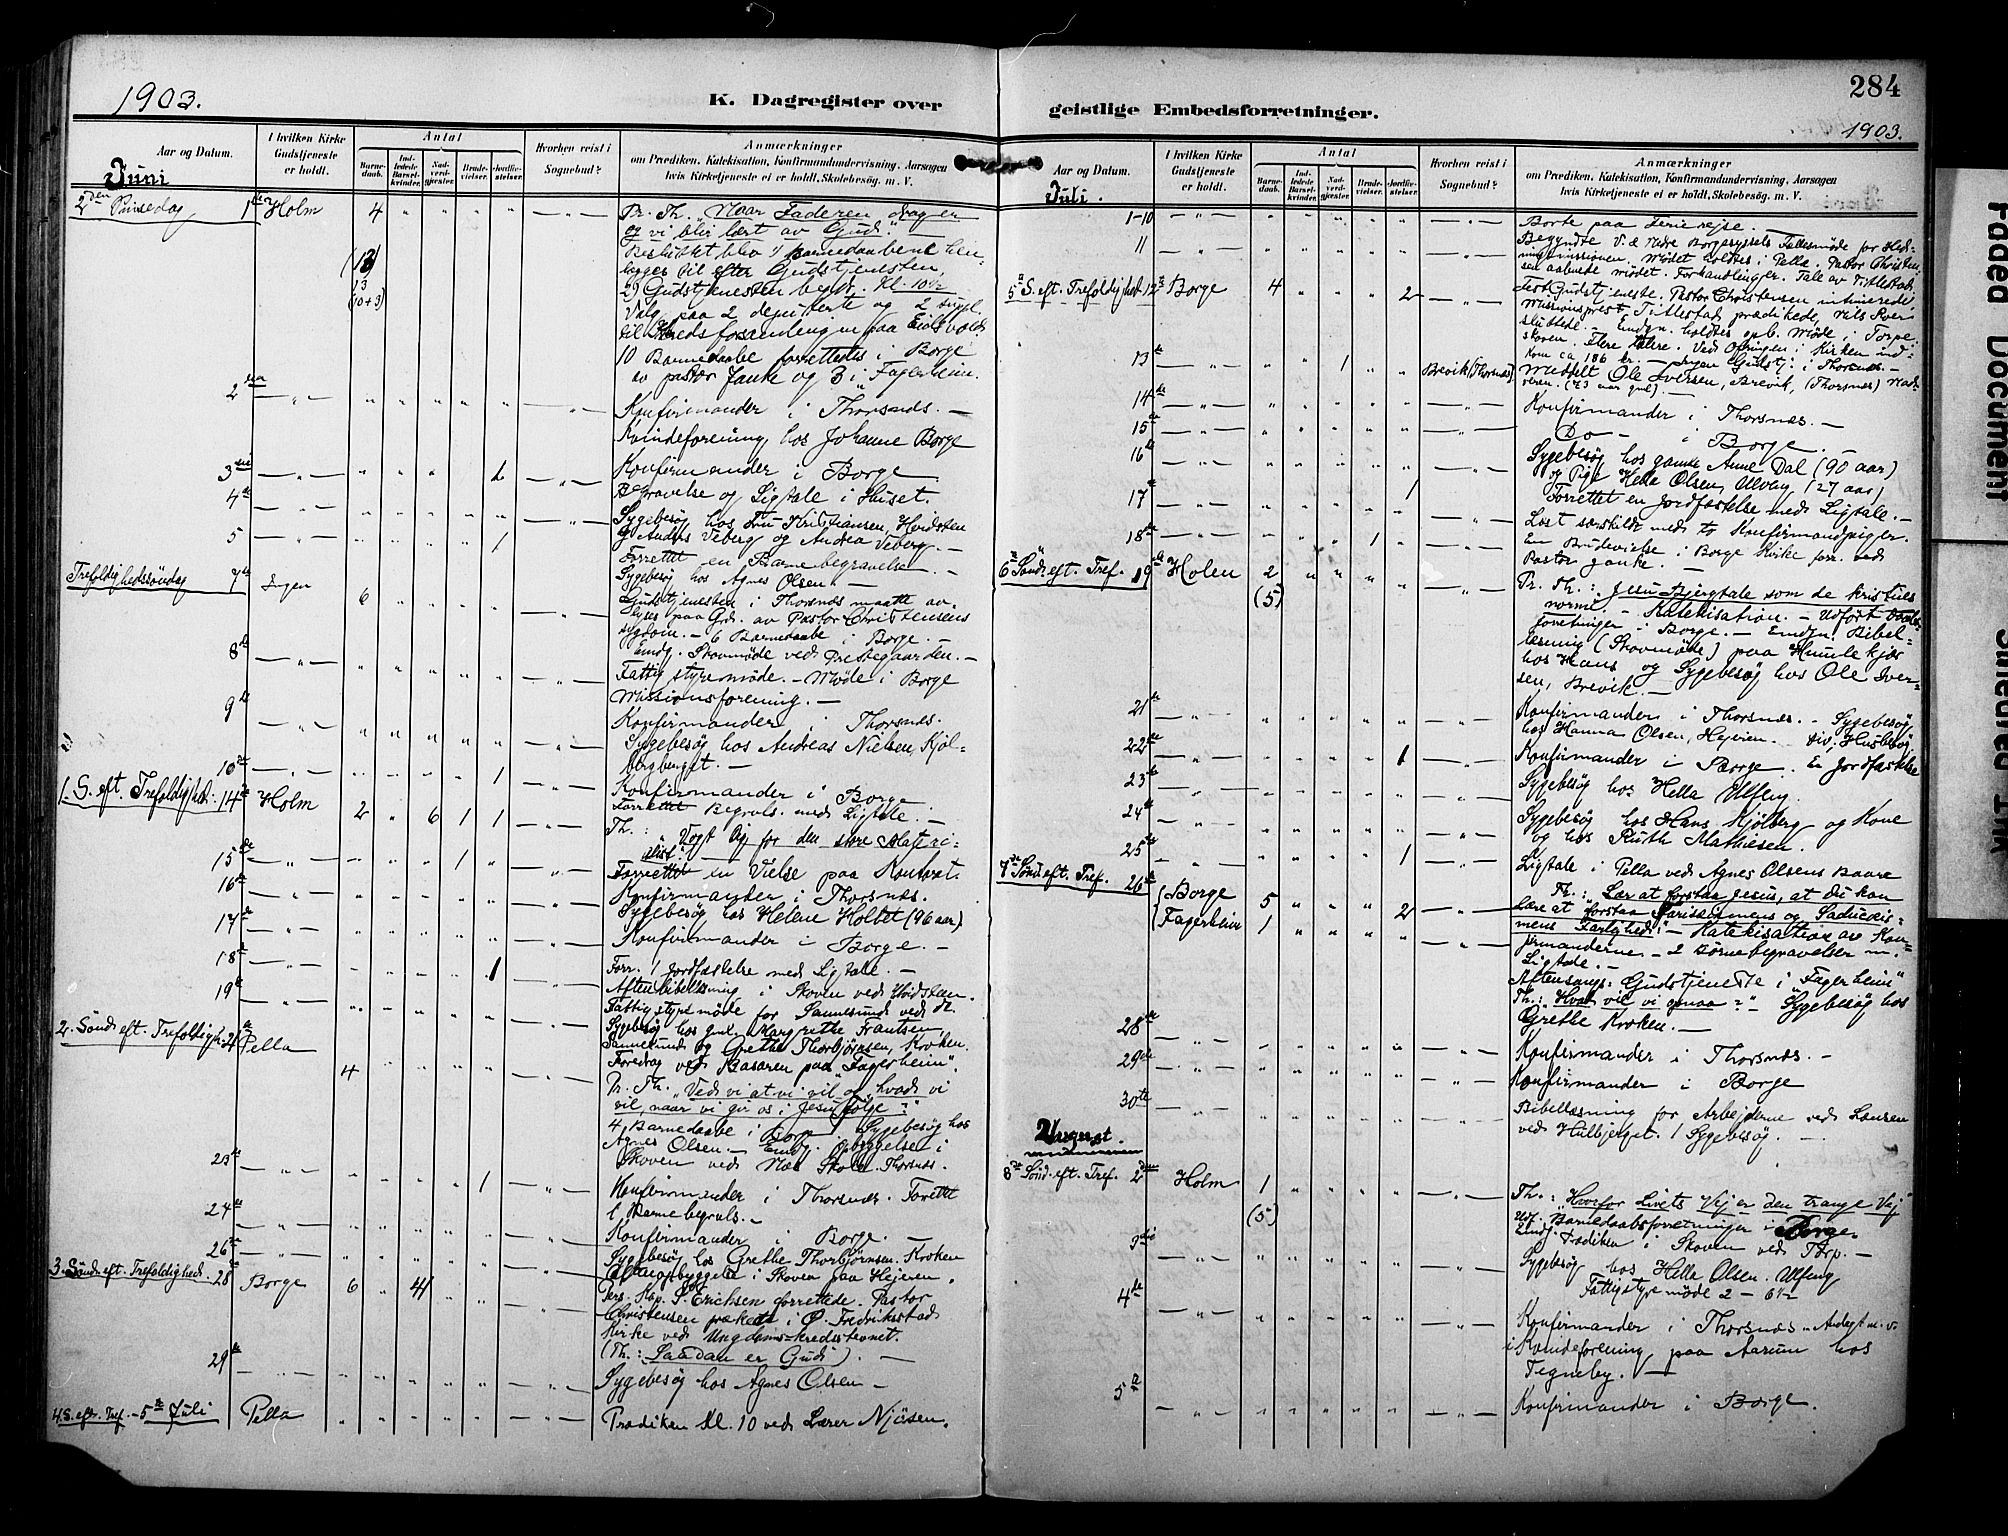 1903.
K. Dagregister over
Aar og Datum.
I hvilken Kirke Gudstjeneste er holdt.
Antal
Barnedaab.
Indledede Barselkvinder.
Nadverdgjester.
Brudevielser.
Jordfæstelser.
Hvorhen reist i Sognebud?
Anmærkninger
om Prædiken, Katekisation, Konfirmandundervisning, Aarsagen
hvis Kirketjeneste ei er holdt, Skolebesøg, m. V.
Juni
2den Pinsedag 1ste Holm 4
Pr. Th. "Naar Faderen drager
og vi blir lært av Gud."
Besluttet blev 1) Barnedaabene hen-
lægges til efter Gudstjenesten,
2) Gudstjenesten beg. Kl. 10½
Valg paa 2 deputerte og 2 suppl.
til Kredsforsamlingen paa Eidsvold
(13)
13
(10+3)
10 Barnedaabe forrettedes i Borge
av pastor Janke og 3 i "Fagerheim.
2den
Konfirmander i Thorsnæs. —
Kvindeforening hos Johanne Borge
3die 2
Konfirmander i Borge
Begravelse og Ligtale i Huset.
4de
Sygebesøg hos Fru Kristiansen, Hvidsten
og Anders Veberg og Andrea Veberg. —
5 1
Forrettet en Barnebegravelse.
Sygebesøg hos Agnes Olsen. —
Trefoldighedssöndag 7de Ingen 6
Gudstjenesten i Thorsnæs maatte av-
lyses paa Grd. av Pastor Christensens
sygdom. — 6 Barnedaabe i Borge. —
Emdg. Skovmöde ved Prestegaarden. —
8de
Fattigstyremöde. — Möde i Borge
Missionsforening. —
9de
Konfirmander i Thorsnæs.
Sygebesøg hos Andreas Nielsen, Kjöl-
bergberget. —
10de 1
Konfirmander i Borge
Forrettet Begravls. med Ligtale. —
1. S. eft. Trefoldighed. 14de Holm 2 6 1 1
Th.: "Vogt dig for den store Materi-
alist." —
15de 1
Forrettet en Vielse paa Kontoret.
16de
Konfirmander i Thorsnæs.
Sygebesøg hos Helene Holtet (96 aar).
17de
Konfirmander i Borge. —
18de 1
Forr. 1 Jordfæstelse med Ligtale. —
Aftenbibellæsning i Skoven ved Hvidsten.
19de
Fattigstyremöde for Sannesund ved dk.
Sygebesøg hos gml. Margrethe Frantsen,
Sannesund og Grethe Thorbjørnsen, Kroken.
Foredrag ved Basaren paa "Fagerheim".
2. Sönd. eft. Trefoldigh. 21de Pella 4
Pr. Th. "Ved vi at vi vil og hvad vi
vil, naar vi gir os i Jesu Følge?"
4 Barnedaabe i Borge. Sygebesøg hos
Agnes Olsen. — Emdg. opbyggelse i
Skoven ved Næs Skole Thorsnæs.
23de 1
Konfirmander i Thorsnæs. Forrettet
1 Barnebegravls. —
24de
Konfirmander i Borge. —
26de
Sygebesøg hos Grethe Thorbjørnsen. Kroken
Aftenopbyggelse i Skoven paa Hejeren.
3. Sönd. eft. Trefoldighed. 28de Borge 6 4
Pers. Kap. S. Erichsen forrettede. Pastor
Christensen prækede i Ø. Fredriksstad
Kirke ved Ungdomskredsstevnet.
(Th.: Saadan er Gud!) —
29de
Sygebesøg hos Agnes Olsen —
4. S. eft. Tref. - 5te Juli Pella
Prædiken Kl. 10 ved Lærer Njösen.
284
geistlige Embedsforretninger.
1903.
Aar og Datum.
I hvilken Kirke Gudstjeneste er holdt.
Antal
Barnedaab.
Indledede Barselkvinder.
Nadverdgjester.
Brudevielser.
Jordfæstelser.
Hvorhen reist i Sognebud?
Anmærkninger
om Prædiken, Katekisation, Konfirmandundervisning, Aarsagen
hvis Kirketjeneste ei er holdt, Skolebesøg, m. V.
Juli.
1-10
Borte paa Feriereise. —
11
Begyndte V. & Nedre Borgesyssels Fællesmöde for Hed-
ningemissionen. Mödet holdtes i Pella. Pastor Christen-
sen aabnede mödet. Forhandlinger. Tale av Titlestad.
5te S. eft. Trefoldighed. 12te Borge 4 2
Fest-Gudstjeneste. Pastor Christensen intimerede
Missionsprest Titlestad prædikede, Nils
sluttede. — Emdgn. holdtes opb. Möde i Torpe-
skoven. Flere talere. Ved Ofringen i Kirken ind-
kom ca 186 kr. — Ingen Gudstj. i Thorsnæs. —
13de 1 Brevik (Thorsnæs)
Meddelt Ole Iversen, Brevik, (Thorsnæs) Nad-
veren. (73 aar gml.)
14de
Konfirmander i Thorsnæs. —
15de
Do — i Borge. —
16de
Sygebesøg hos gamle Anne Dal (90 aar)
og Pige Hella Olsen, Ulveng (27 aar)
17de 1
Forrettet en Jordfæstelse med Ligtale. —
Læst særskildt med to Konfirmandpiger.
18de 1
En Brudevielse i Borge Kirke forr. ved
Pastor Janke. —
6te Sönd. eft. Tref. 19de Holm 2
(5)
Pr. Th.: Jesu Bjergtale som de kristnes
norm. — Katekisation. — Udført Daabs-
forretninger i Borge. — Emdgn. Bibel-
læsning (Skovmöde) paa Humlekjær
hos Hans og Sygebesøg hos Ole Iver-
sen, Brevik. —
21de
Konfirmander i Thorsnæs. — Sygebesøg
hos Hanna Olsen, Hejeren. Div. Husbesøg
22de 1
Konfirmander i Borge. En Jordfæstelse
23de
Sygebesøg hos Hella Ulfeng.
24de
Sygebesøg hos Hans Kjölberg og Kone
og hos Ruth Mathiesen.
25de 1
Ligtale i Pella ved Agnes Olsens Baare
7de Sönd. eft. Tref. 26de
Borge 5 2
Fagerheim 1
Th.: Lær at forstaa Jesus, at du kan
lære at forstaa Farisæismens og Saducæis-
mens Farlighed! — Katekisation av Kon-
firmanderne. — 2 Börnebegravelser m.
Ligtale. —
Aftensangs-Gudstjeneste i "Fagerheim"
Th.: Hvad vil vi opnaa?" Sygebesøg hos
Grethe Kroken. —
28de
Konfirmander i Thorsnæs. —
29de
Konfirmander i Borge
30te
Bibellæsning for Arbejderne ved Lansen
ved Hulbjerget. 1 Sygebesøg. —
August.
8de Sönd. eft. Tref. 2den Holm 1
(5)
Th.: "Hvorfor Livets Vej er den trange Vej"
Udf. Barnedaabsforretninger i Borge.
Emdg. Prædiken i Skoven ved Torp. —
3die
Sygebesøg hos Hella Olsen. Ulfeng
Fattigstyremöde 2 — 6½
4de
Konfirmander i Thorsnæs. Andagt m. v.
i Kvindeforening paa Aarum hos
Tegneby. —
5te
Konfirmander i Borge.
Faded Document
Smeared Ink